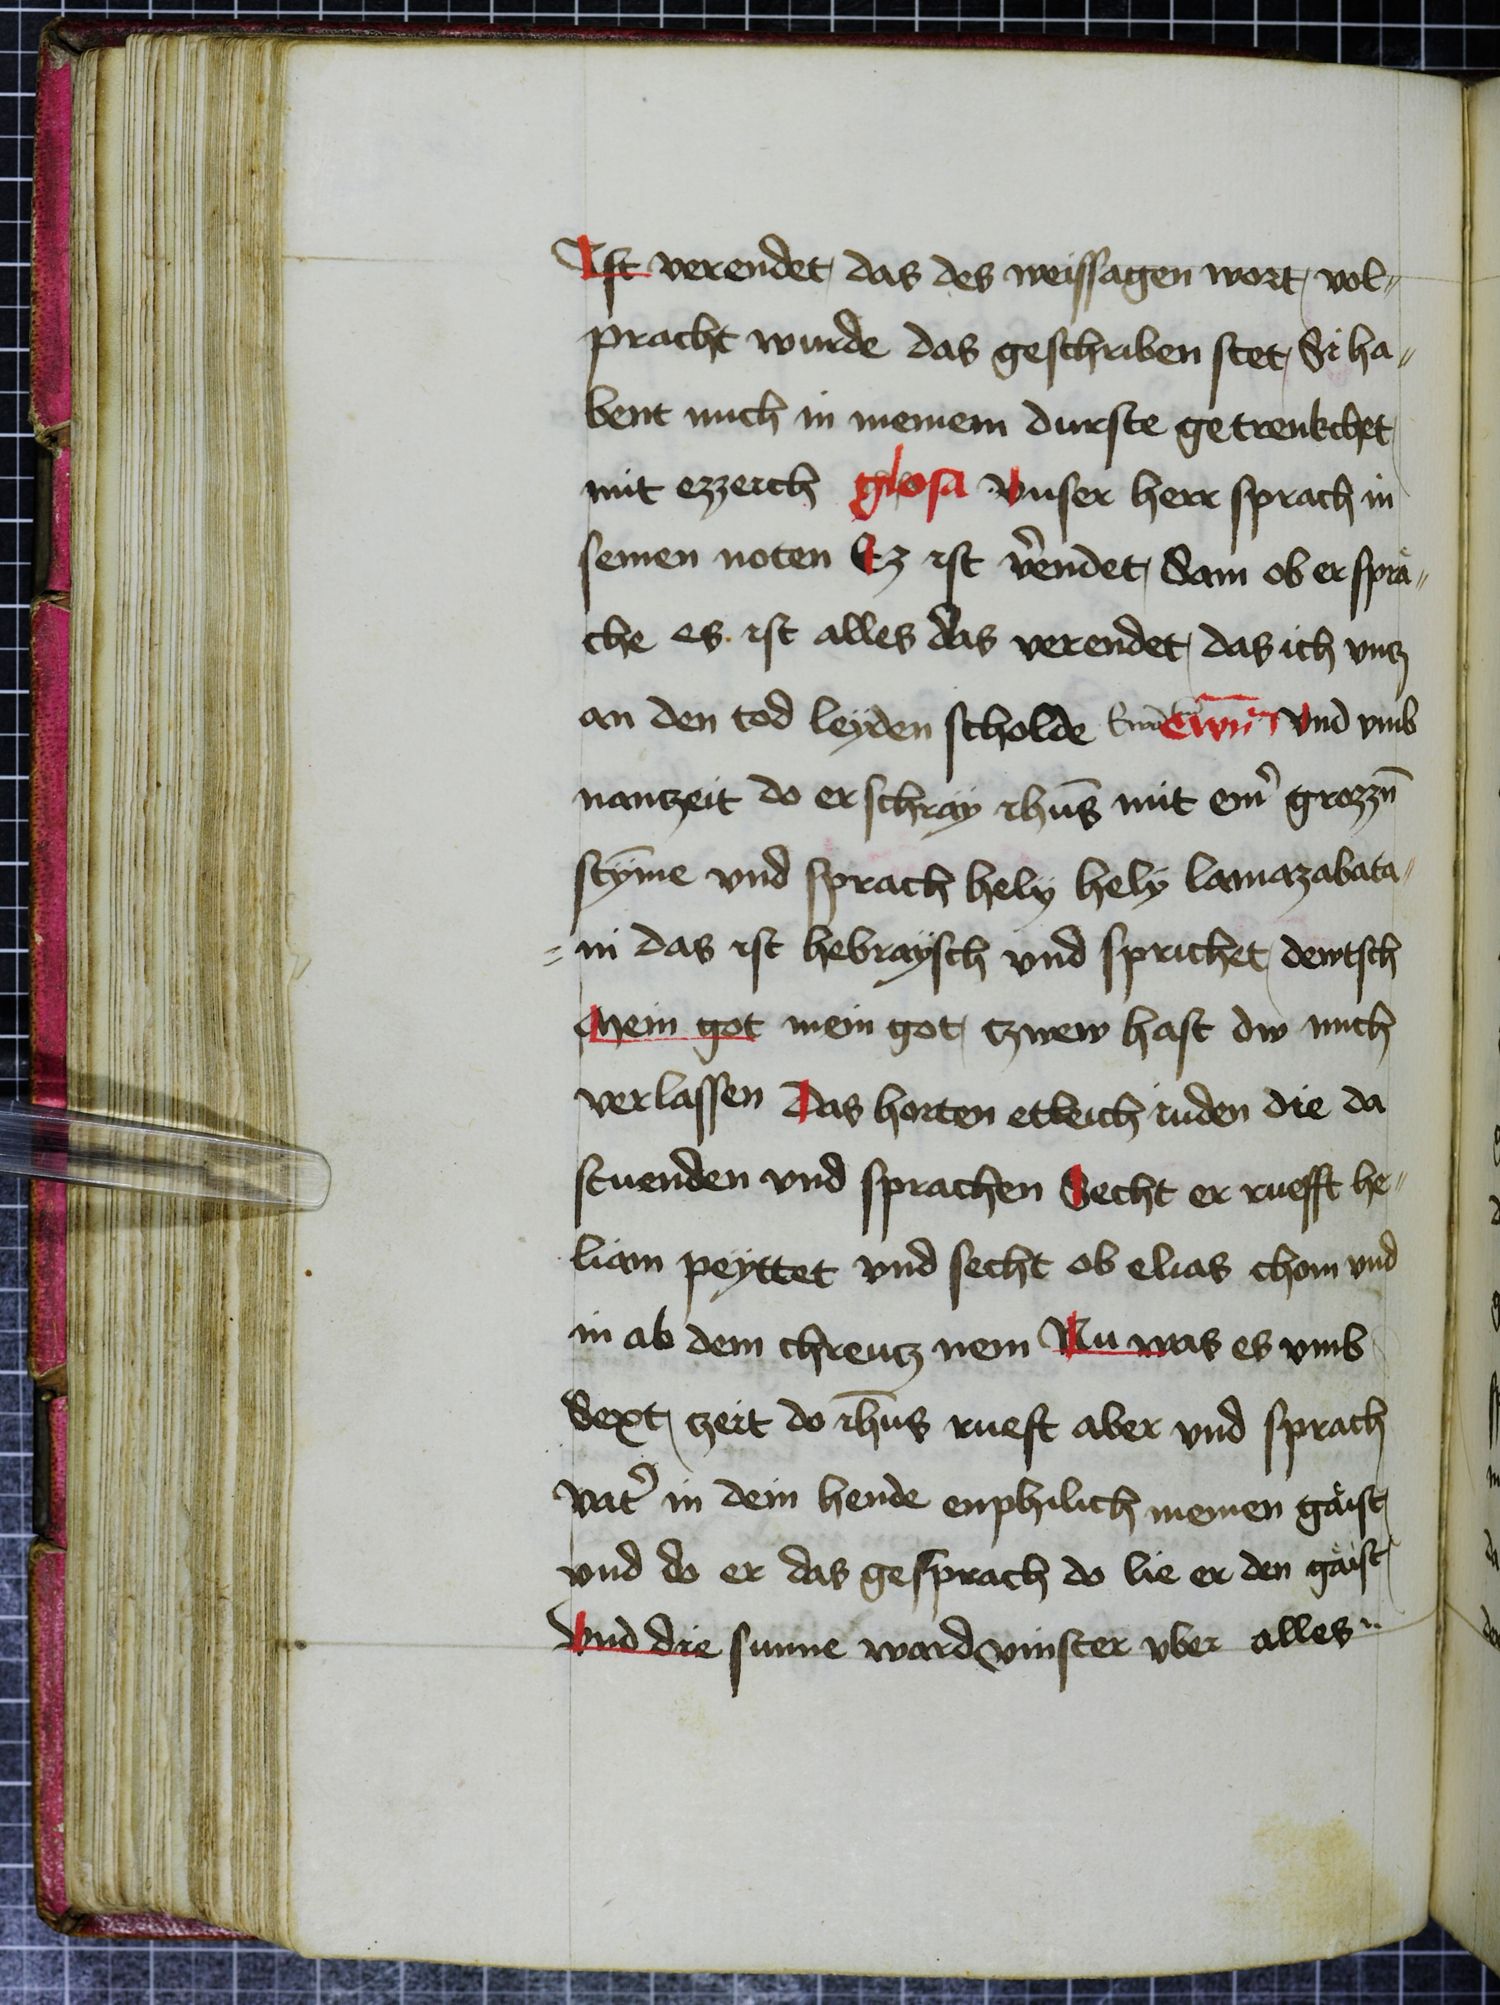 Ist verendet das des weissagen wort vol„
pracht wurde das geschriben stet Si ha„
bent mich in meinem durste getrenkchet
mit ezzeich glosa Vnser herr sprach in
seinen noten Ez ist v̾endet Sam ob er sprä„
che es ist alles das verendet das ich vntz
an den tod leyden scholde Ewn̄ Vnd vmb
nantzeit do er schray ihūs mit ein̾ grozzn̄
stȳme vnd sprach hely hely lamazabata„
„ni das ist hebraysch vnd sprichet dewtsch
Mein got mein got tzwew hast dw mich
verlassen Das horten etleich iuden die da
stuenden vnd sprachen Secht er ruefft he„
liam peyttet vnd secht ob elias chom vnd
in ab dem chreutz nem Nu was es vmb
Sext zeit do ihūs rueft aber vnd sprach
vat̾ in dein hende enphilich meinen gäist
vnd do er das gesprach do lie er den gäist
Vnd die sunne ward vinster vber alles